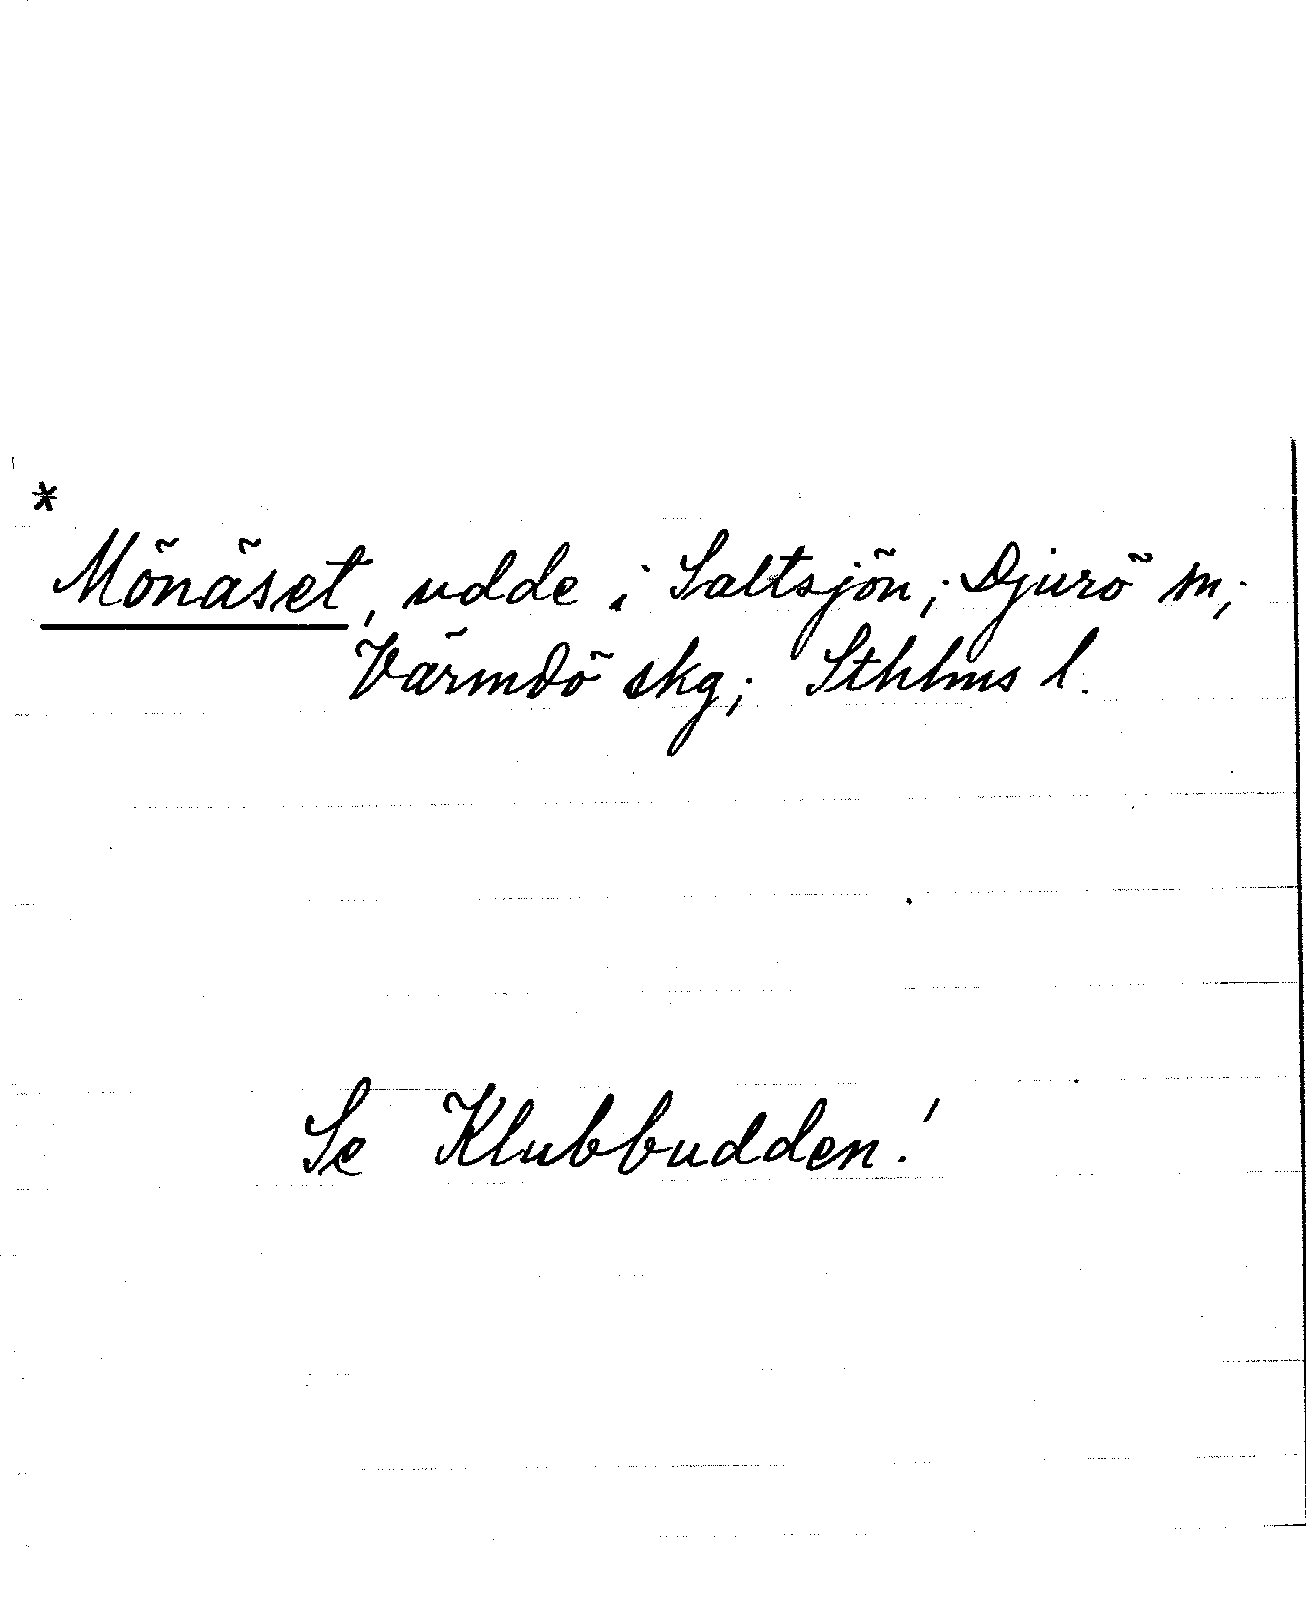 *
Mönäset, udde i Saltsjön; Djurö sn;
Värmdö skg; Sthlms l.
Se Klubbudden!